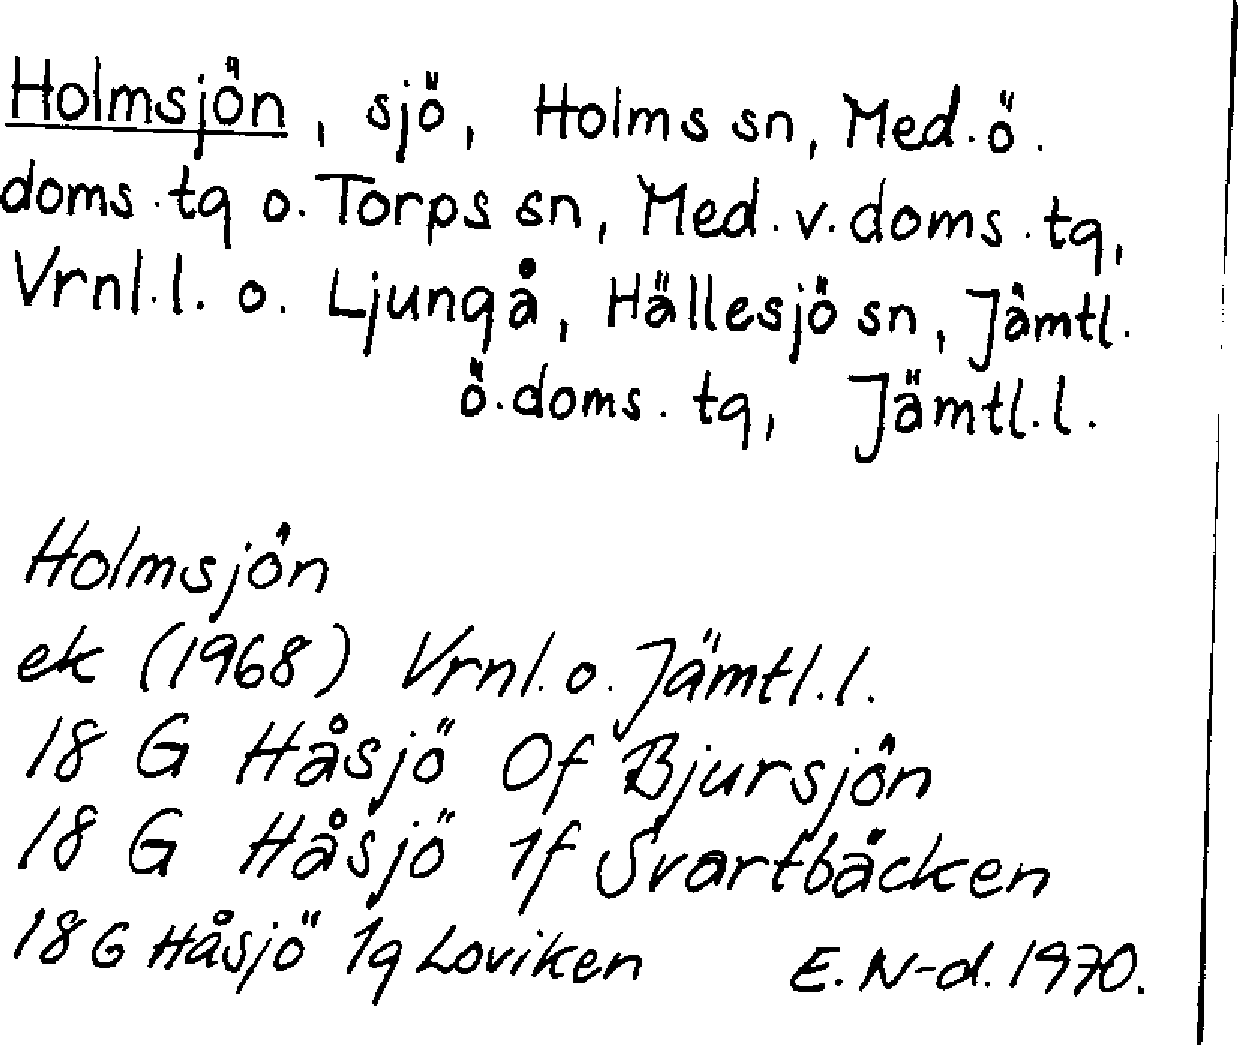 Holmsjön, sjö, Holms sn, Med. ö.
doms. tg o. Torps sn, Med. v. doms. tg,
Vrnl. l. o. Ljungå, Hällesjö sn, Jämtl.
ö. doms. tg, Jämtl. l.
Holmsjön
ek (1968) Vrnl. o. Jämtl. l.
18 G Håsjö 0f Bjursjön
18 G Håsjö 1f Svartbäcken
18 G Håsjö 1g Loviken E. N-d. 1970.